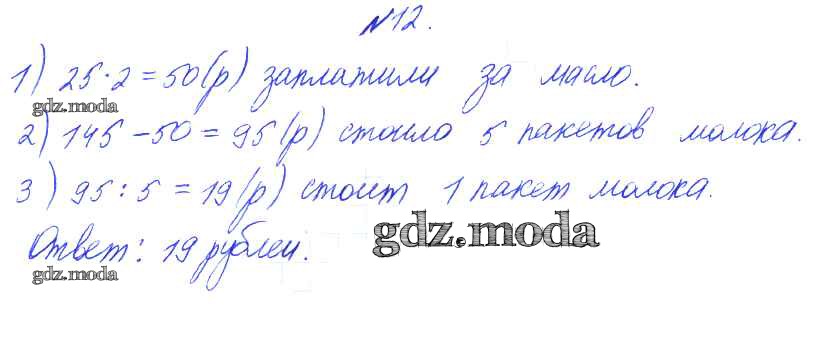 №12.
1) 25·2=50(р) заплатили за масло.
gdz.moda
2) 145-50=95(р) стоило 5 пакетов молока.
3) 95:5=19(р) стоит 1 пакет молока.
gdz.moda
Ответ: 19 рублей.
gdz.moda